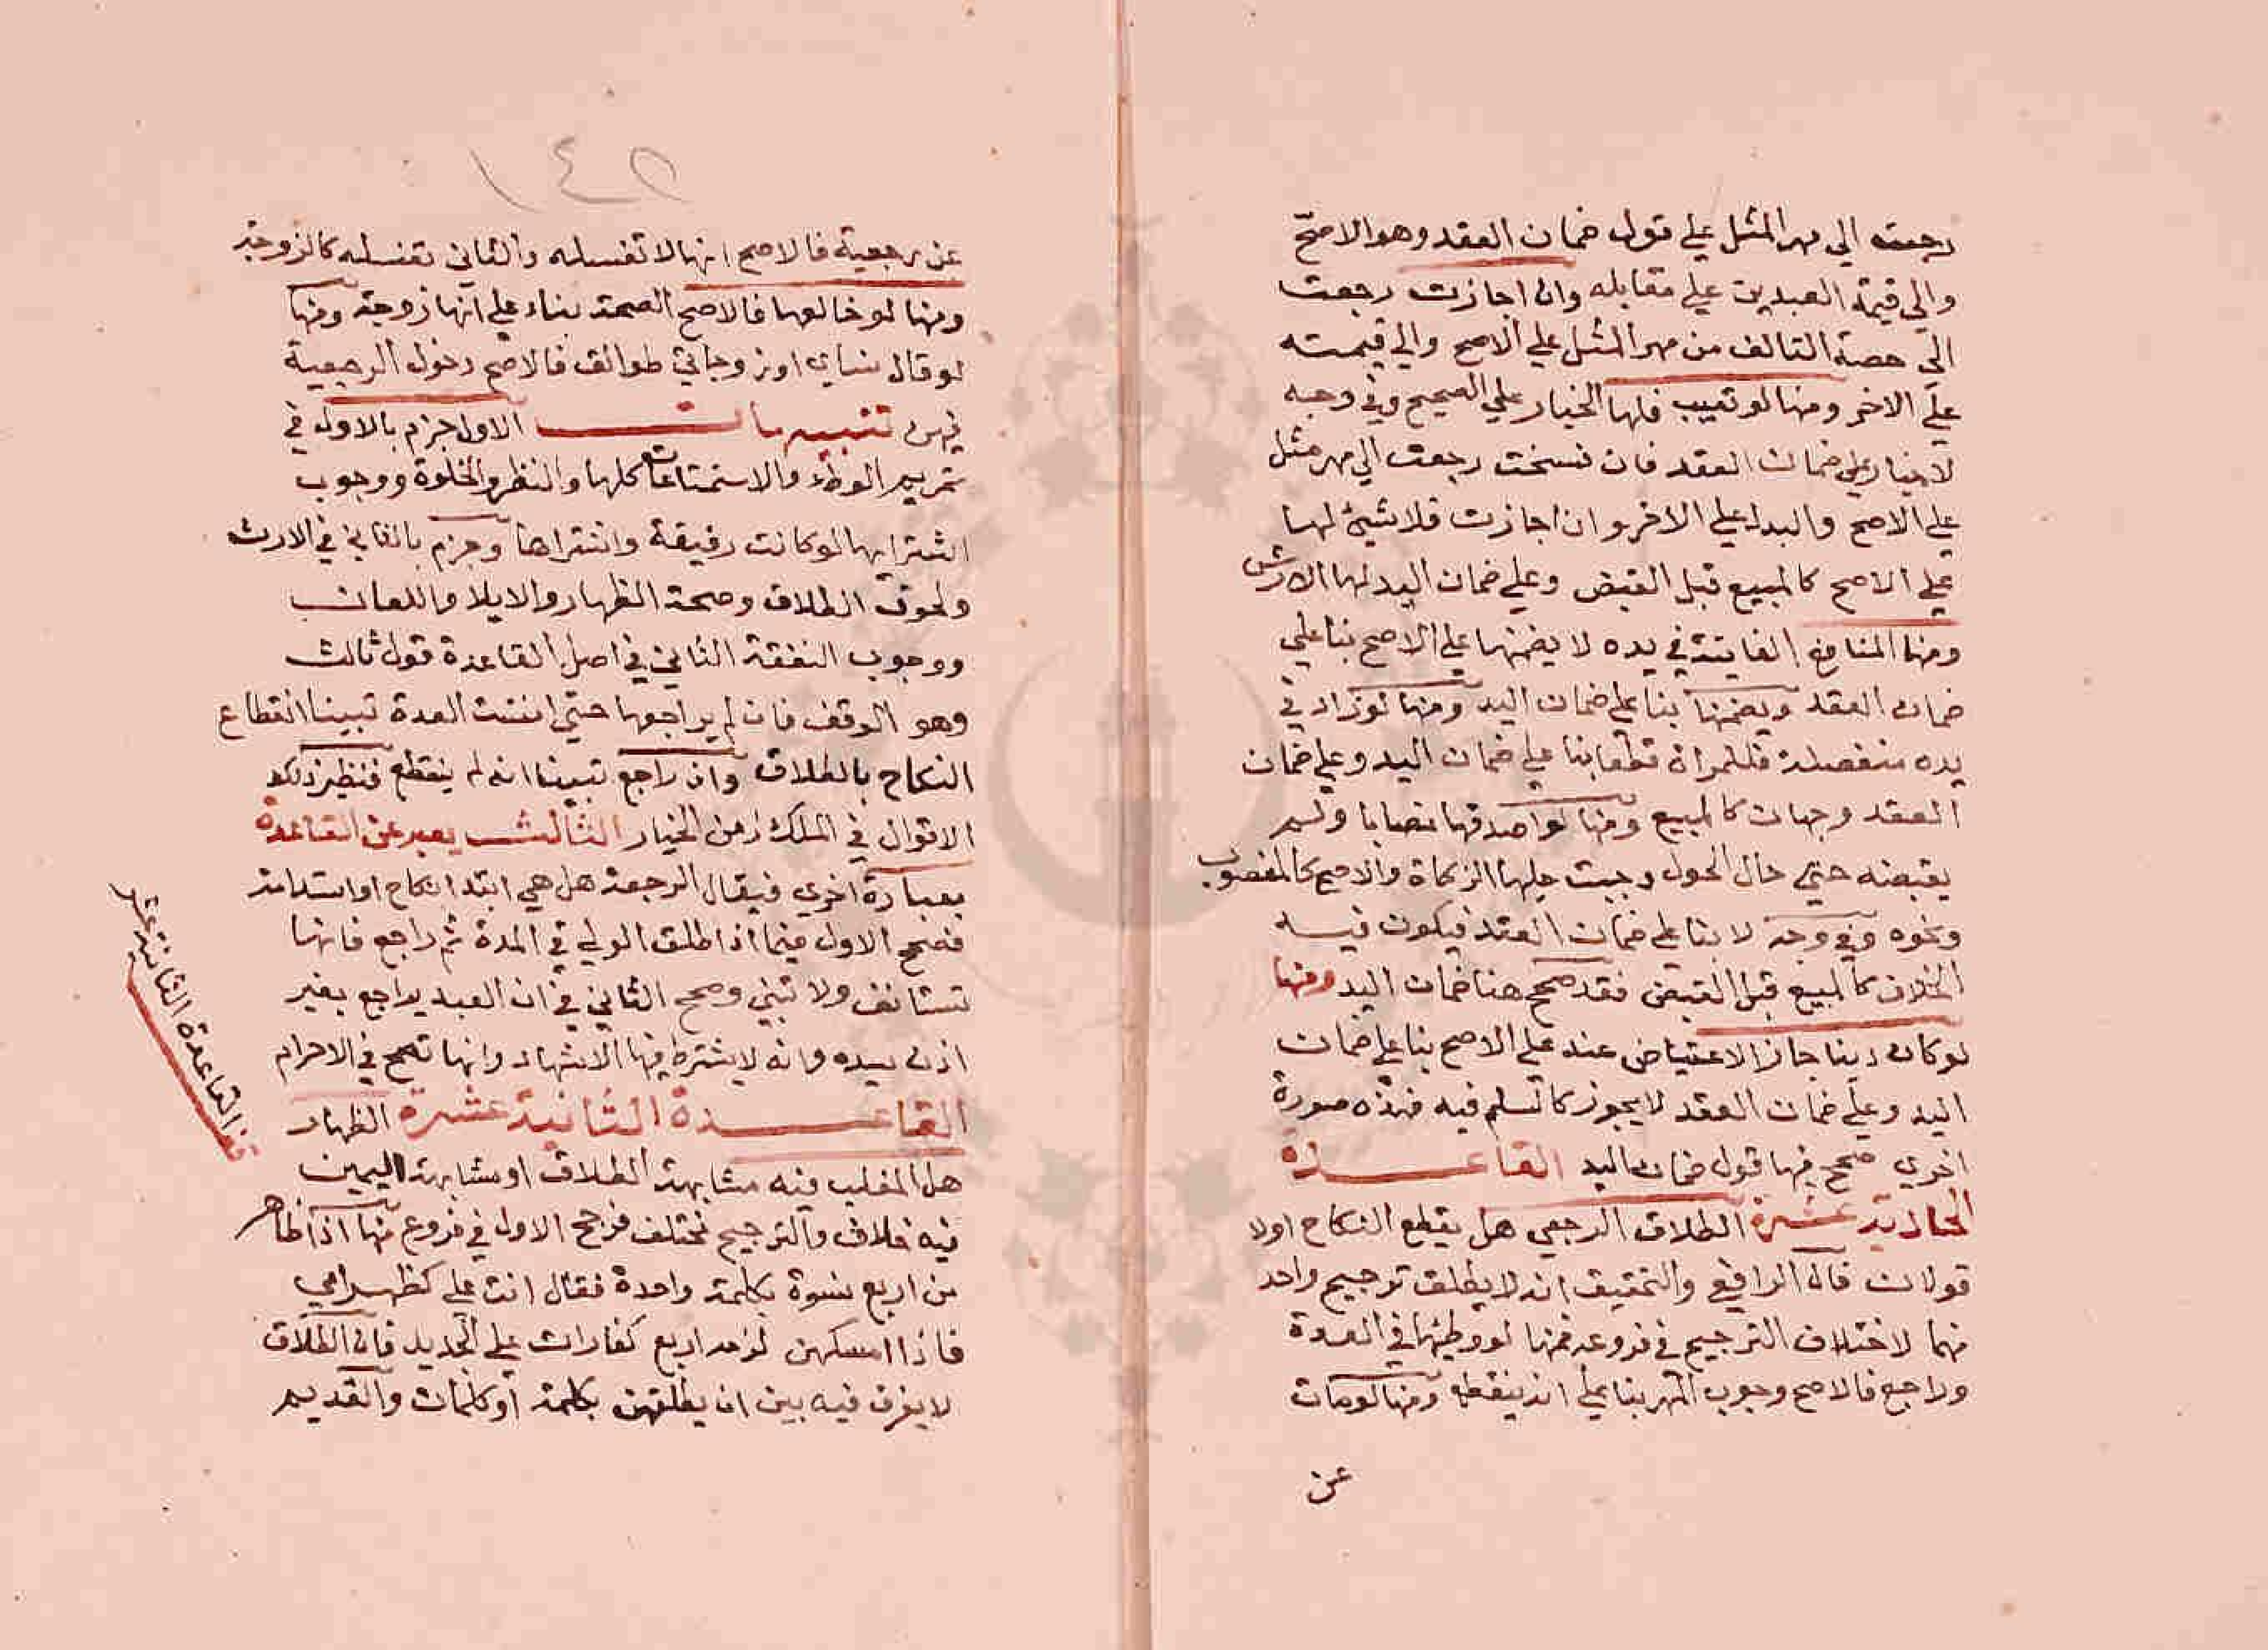 رجعت الي مهر المثل علي قول ضمان العقد وهو الاصح
والي قيمة العبدين علي مقابله وان اجازت رجعت
الي حصة التالف من مهر المثل علي الاصح والي قيمته
علي الاخر ومنها لو تعيب فلها الخيار علي الصحيح وفي وجه
لا خيار علي ضمان العقد فان فسخت رجعت الي مهر مثل
علي الاصح والبدل علي الاخر وان اجازت فلا شيئ لها
علي الاصح كالمبيع قبل القبض وعلي ضمان اليد لها الارش
ومنها المنافع الفايتة في يده لا يضمنها علي الاصح بنا علي
ضمان العقد ويضمنها بنا علي ضمان اليد ومنها لو زاد في
يده منفصلة فللمراة قطعا بنا علي ضمان اليد وعلي ضمان
العقد وجهان كالمبيع ومنها لو اصدقها نصابا ولم
يقبضه حتي حال الحول وجبت عليها الزكاة والاصح كالمغصوب
ونحوه وفي وجه لا بنا علي ضمان العقد فيكون فيه
الخلاف كالمبيع قبل القبض فقد صحح هنا ضمان اليد ومنها
لو كان دينا جاز الاعتياض عنه علي الاصح بنا علي ضمان
اليد وعلي ضمان العقد لا يجوز كالسلم فيه فهذه صورة
اخري صحح فيها قول ضمان اليد القاعدة
الحادية عشرة الطلاق الرجعي هل يقطع النكاح اولا
قولان قال الرافعي والتحقيق انه لا يطلق ترجيح واحد
منهما لاختلاف الترجيح في فروعه فمنها لو وطيها في العدة
وراجع فالاصح وجوب المهر بنا علي انه ينقطع ومنها لو مات
عن
١٤٥
عن رجعية فالاصح انها لا تغسله والثاني تغسله كالزوجة
ومنها لو خالعها فالاصح الصحة بناء علي انها زوجة ومنها
لو قال نساي او زوجاتي طوالق فالاصح دخول الرجعية
فيهن تنبيهات الاول جزم بالاول في
تحريم الوطء والاستمتاعات كلها والنظر والخلوة ووجوب
استبرايها لو كانت رقيقة واشتراها وجزم بالثاني في الارث
ولحوق الطلاق وصحة الظهار والايلا واللعان
ووجوب النفقة الثاني في اصل القاعدة قول ثالث
وهو الوقف فان لم يراجعها حتي انقضت العدة تبينا انقطاع
النكاح بالطلاق وان راجع تبينا انه لم ينقطع فنظير ذلك
الاقوال في الملك زمن الخيار الثالث يعبر عن القاعدة
بعبارة اخري فيقال الرجعة هل هي ابتدا نكاح او استدامة
فصحح الاول فيما اذا طلق المولي في المدة ثم راجع فانها
تستانف ولا تبني وصحح الثاني في ان العبد يراجع بغير
اذن سيده وانه لا يشترط فيها الاشهاد وانها تصح في الاحرام
القاعدة الثانية عشرة الظهار
هل المغلب فيه مشابهة الطلاق او مشابهة اليمين
فيه خلاف والترجيح مختلف فرجح الاول في فروع منها اذا ظاهر
من اربع نسوة بكلمة واحدة فقال انتن علي كظهر امي
فاذا امسكهن لزمه اربع كفارات علي الجديد فان الطلاق
لا يفرق فيه بين ان يطلقهن بكلمة او كلمات والقديم
القاعدة الثانية عشر